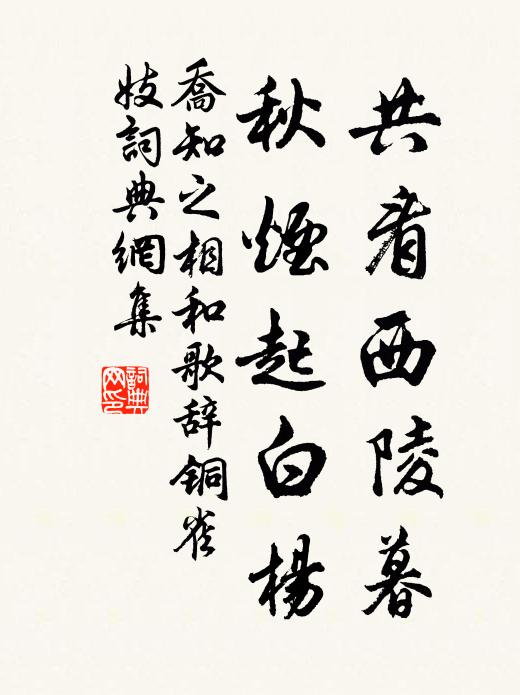 共看西陵暮
秋煙起白楊
喬知之相和歌辞铜雀
妓詞典網集
詞典
网印